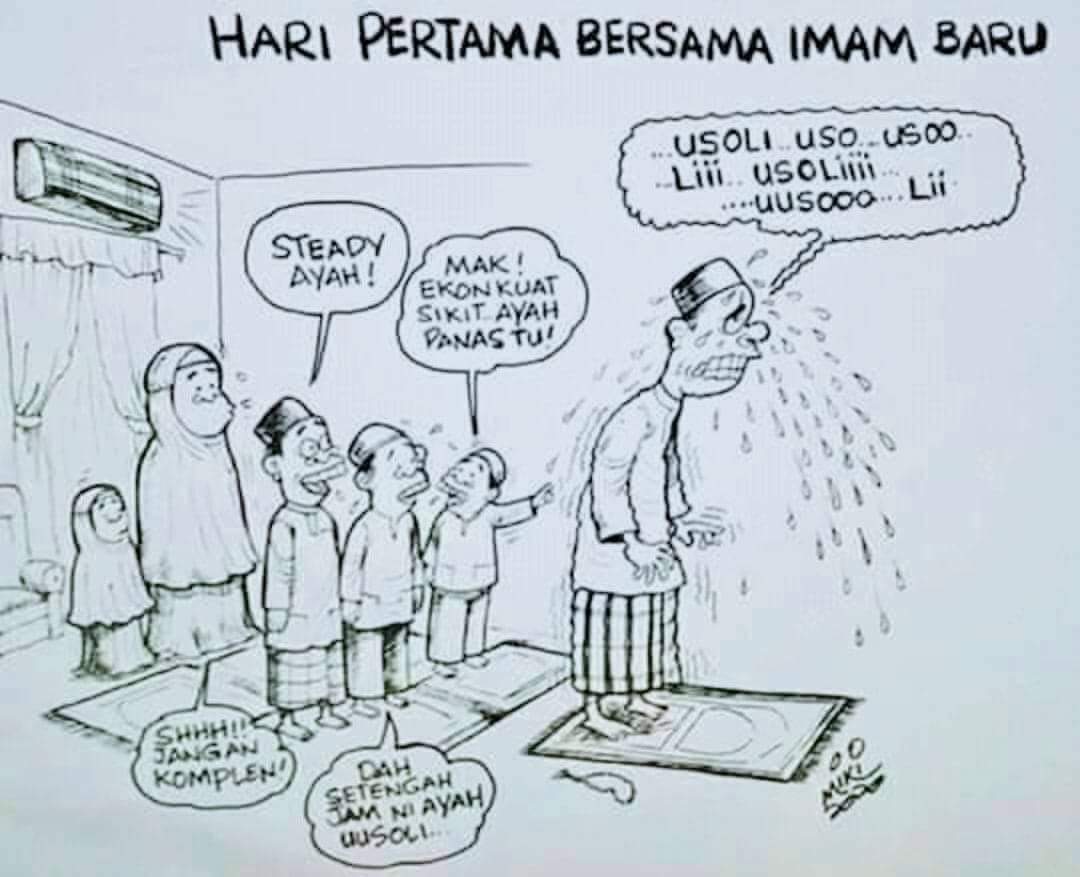 HARI PERTAMA BERSAMA IMAM BARU
...USOLI..USO...USOO..
..Liii.. USOLiiii...
....UUSOOO....Lii.
STEADY
AYAH!
MAK!
EKON KUAT
SIKIT..AYAH
PANAS TU!
SHHH!!
JANGAN
KOMPLEN!
DAH
SETENGAH
JAM NI AYAH
UUSOLI...
MIKI